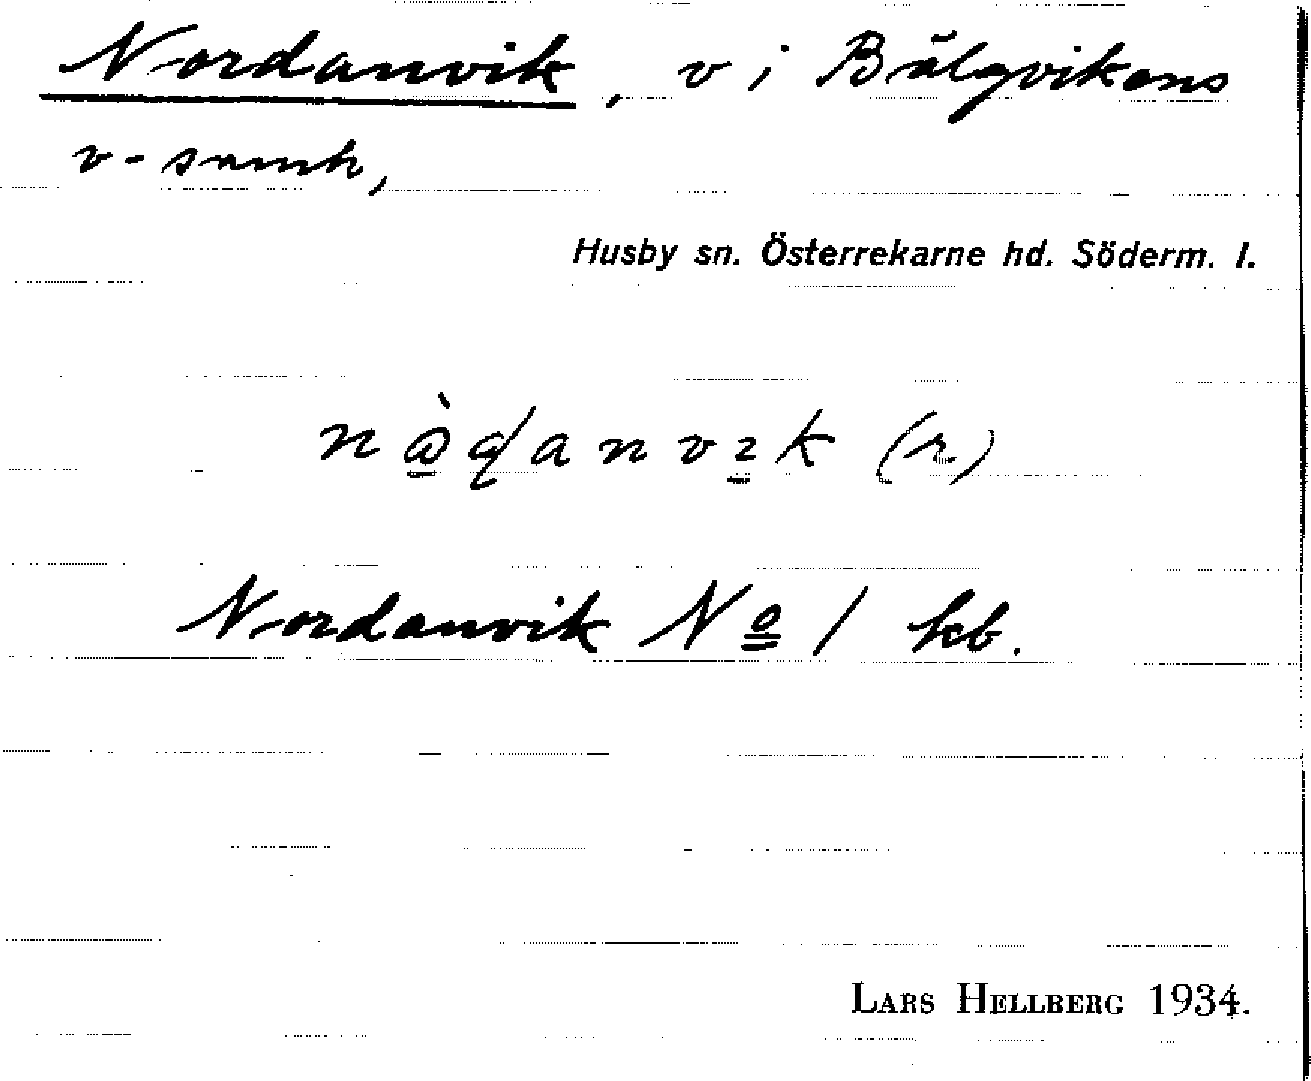 Nordanvik, v i Bälgvikens
v-samh,
Husby sn. Österrekarne hd. Söderm. l.
(r)
Nordanvik Nº 1 kb.
LARS HELLBERG 1934.